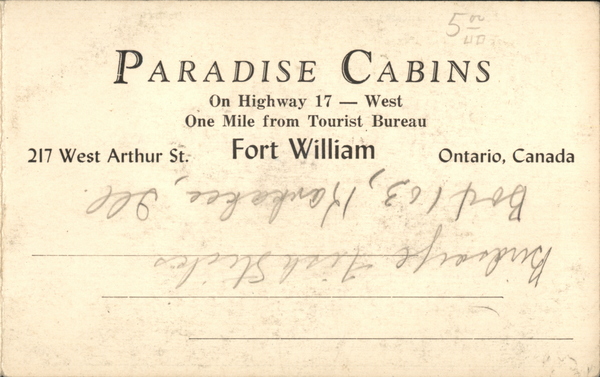 5 00
PARADISE CABINS
On Highway 17 — West
One Mile from Tourist Bureau
217 West Arthur St. Fort William Ontario, Canada
Birdseye Fish Sticks
Box 163, Kankakee, Ill.